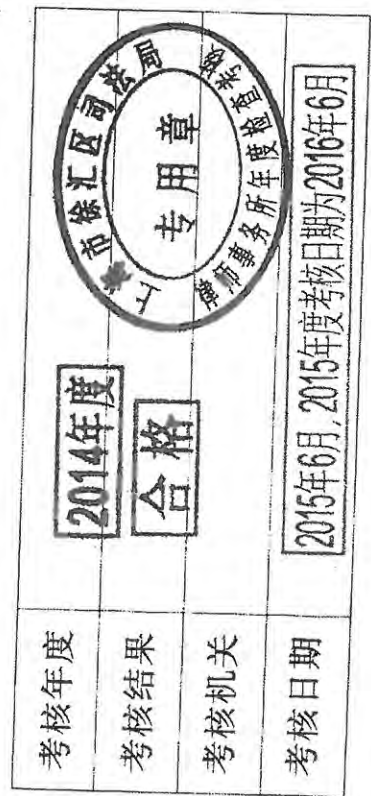 考核年度
2014年度
考核结果
合格
考核机关
上海市徐汇区司法局
专用章
律师事务所年度检查考核
考核日期
2015年6月,2015年度考核日期为2016年6月